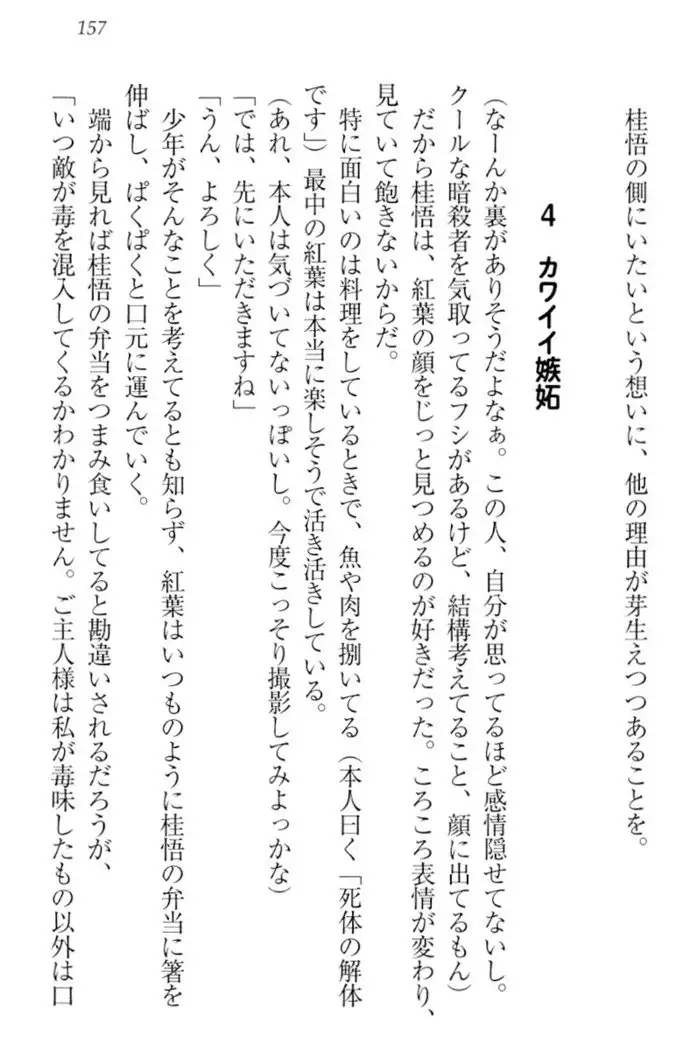 157
桂悟の側にいたいという想いに、他の理由が芽生えつつあることを。
4 カワイイ嫉妬
(なーんか裏がありそうだよなぁ。この人、自分が思ってるほど感情隠せてないし。
クールな暗殺者を気取ってるフシがあるけど、結構考えてること、顔に出てるもん)
だから桂悟は、紅葉の顔をじっと見つめるのが好きだった。ころころ表情が変わり、
見ていて飽きないからだ。
特に面白いのは料理をしているときで、魚や肉を捌いてる(本人曰く「死体の解体
です」)最中の紅葉は本当に楽しそうで活き活きしている。
(あれ、本人は気づいてないっぽいし。今度こっそり撮影してみよっかな)
「では、先にいただきますね」
「うん、よろしく」
少年がそんなことを考えてるとも知らず、紅葉はいつものように桂悟の弁当に箸を
伸ばし、ぱくぱくと口元に運んでいく。
端から見れば桂悟の弁当をつまみ食いしてると勘違いされるだろうが、
「いつ敵が毒を混入してくるかわかりません。ご主人様は私が毒味したもの以外は口